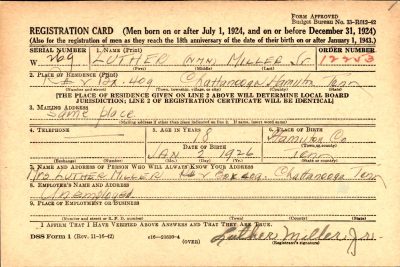 Form Approved
Budget Bureau No. 33-R012-42
REGISTRATION CARD—(Men born on or after July 1, 1924, and on or before December 31, 1924)
(Also for the registration of men as they reach the 18th anniversary of the date of their birth on or after January 1, 1943.)
SERIAL NUMBER 1. NAME (Print) ORDER NUMBER
W 269 LUTHER (NMN) MILLER Jr 12253
(First) (Middle) (Last)
2. PLACE OF RESIDENCE (Print)
Box 409 Chattanooga Hamilton Tenn
(Number and street) (Town, township, village, or city) (County) (State)
[THE PLACE OF RESIDENCE GIVEN ON LINE 2 ABOVE WILL DETERMINE LOCAL BOARD
JURISDICTION; LINE 2 OF REGISTRATION CERTIFICATE WILL BE IDENTICAL]
3. MAILING ADDRESS
Same place
(Mailing address if other than place indicated on line 2. If same, insert word same)
4. TELEPHONE 5. AGE IN YEARS 6. PLACE OF BIRTH
18 Hamilton Co
DATE OF BIRTH (Town or county)
JAN 2 1926 Tenn
(Exchange) (Number) (Mo.) (Day) (Yr.) (State or country)
7. NAME AND ADDRESS OF PERSON WHO WILL ALWAYS KNOW YOUR ADDRESS
Mrs LUTHER MILLER Box 409 Chattanooga Tenn
8. EMPLOYER'S NAME AND ADDRESS
Unemployed
9. PLACE OF EMPLOYMENT OR BUSINESS
(Number and street or R. F. D. number) (Town) (County) (State)
I AFFIRM THAT I HAVE VERIFIED ABOVE ANSWERS AND THAT THEY ARE TRUE.
DSS Form 1 (Rev. 11-16-42) (OVER) Luther Miller Jr.
(Registrant's signature)